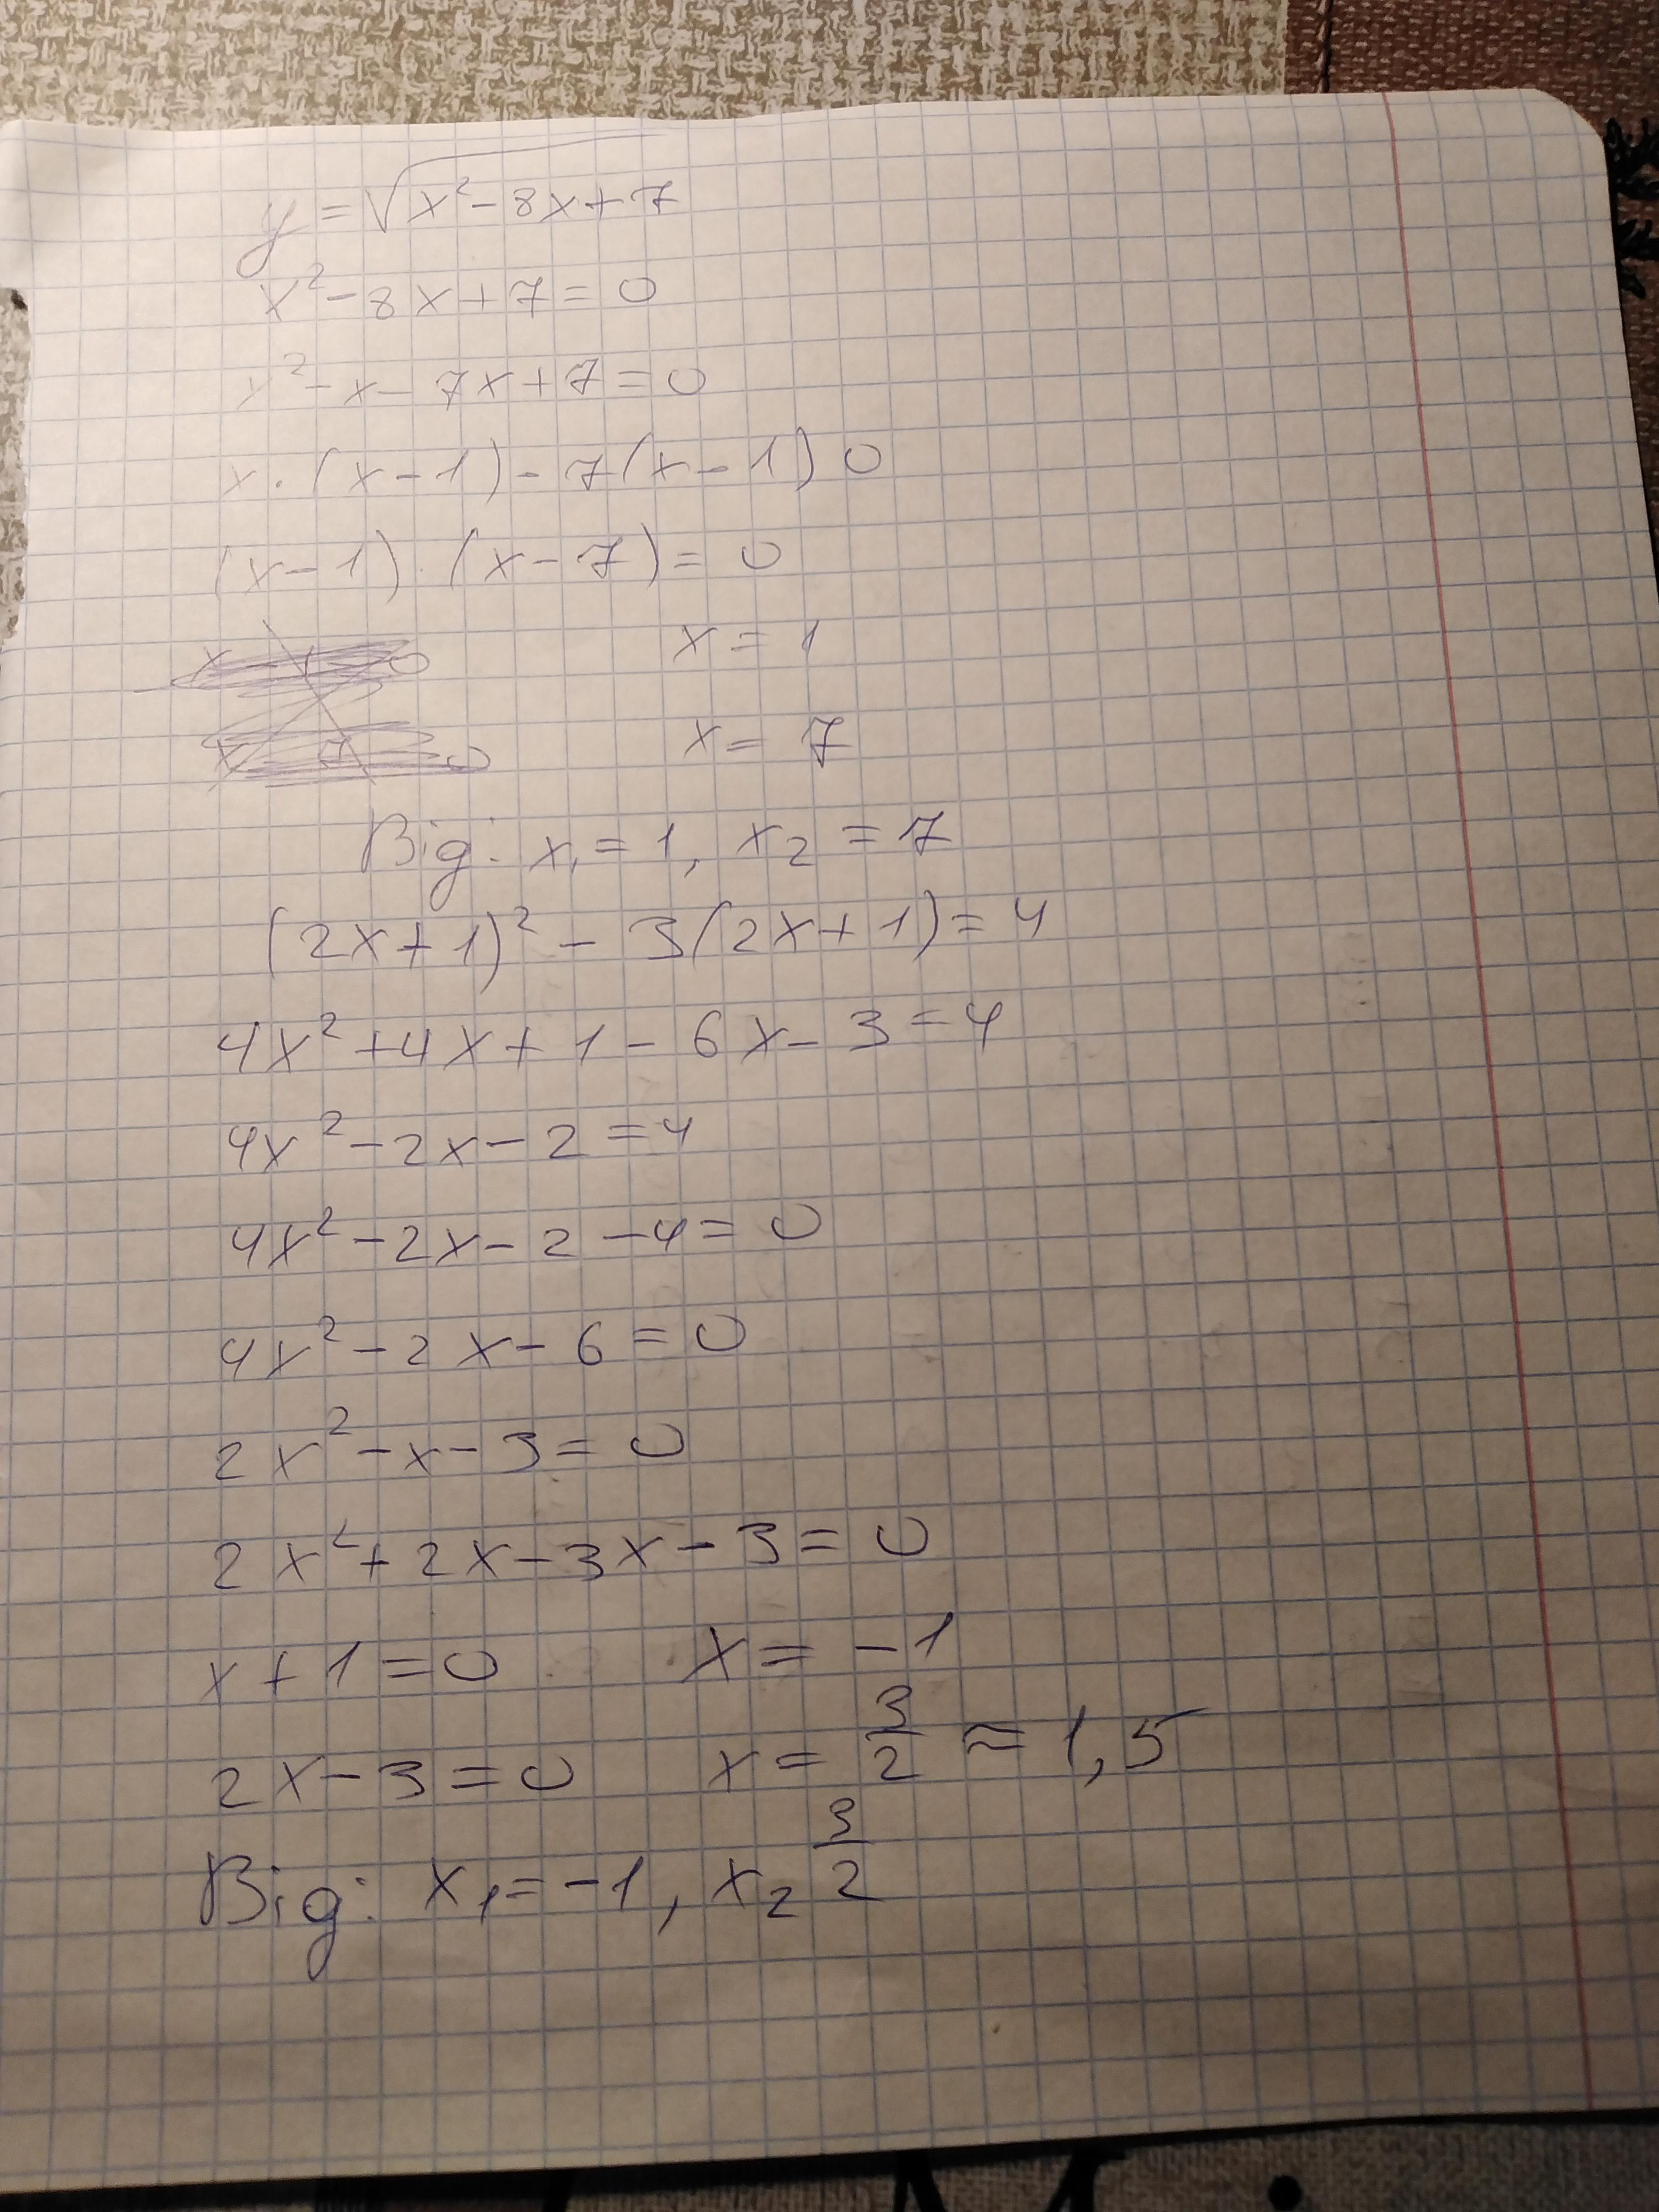 y = √(x² - 8x + 7)
x² - 8x + 7 = 0
x² - x - 7x + 7 = 0
x · (x - 1) - 7(x - 1) 0
(x - 1) · (x - 7) = 0
x = 1
x = 7
Від: x₁ = 1, x₂ = 7
(2x + 1)² - 3(2x + 1) = 4
4x² + 4x + 1 - 6x - 3 = 4
4x² - 2x - 2 = 4
4x² - 2x - 2 - 4 = 0
4x² - 2x - 6 = 0
2x² - x - 3 = 0
2x² + 2x - 3x - 3 = 0
x + 1 = 0 x = -1
2x - 3 = 0 x = 3/2 ≈ 1,5
Від: x₁ = -1, x₂ 3/2